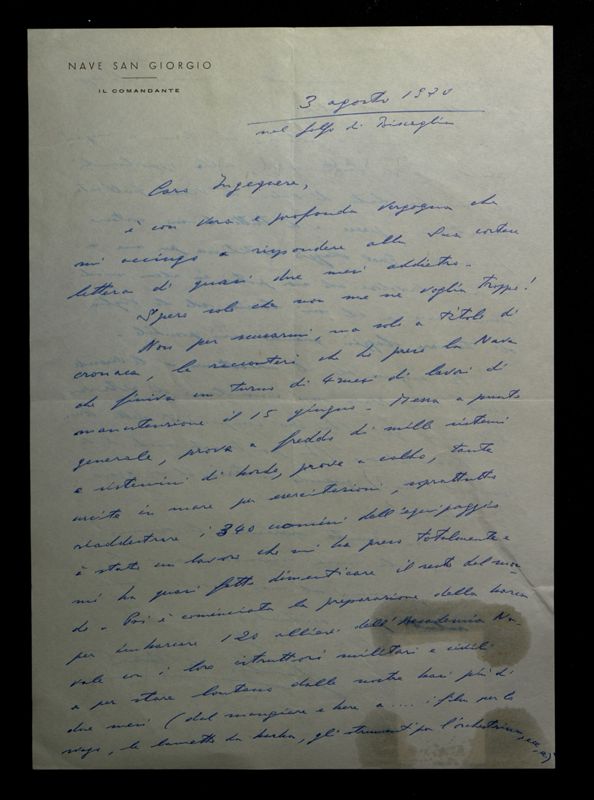 NAVE SAN GIORGIO
IL COMANDANTE
3 agosto 1970
nel golfo di Biscaglia
Caro Ingegnere,
è con vera e profonda vergogna che
mi accingo a rispondere alla Sua cortese
lettera di quasi due mesi addietro.
Spero solo che non me ne voglia troppo!
Non per scusarmi, ma solo a titolo di
cronaca, le racconterò che ho preso la Nave
che finiva un turno di 4 mesi di lavori di
manutenzione il 15 giugno - Messa a punto
generale, prova a freddo di mille sistemi
e sistemini di bordo, prove a caldo, tante
uscite in mare per esercitazioni, soprattutto
riaddestrare i 340 uomini dell'equipaggio
è stato un lavoro che mi ha preso totalmente e
mi ha quasi fatto dimenticare il resto del mon-
do - Poi è cominciata la preparazione della barca
per imbarcare 120 allievi dell'Accademia Na-
vale con i loro istruttori militari e civili
e per stare lontano dalle nostre basi più di
due mesi (dal mangiare e bere a .... i film per lo
svago, le lamette da barba, gli strumenti per l'orchestrina, ecc.